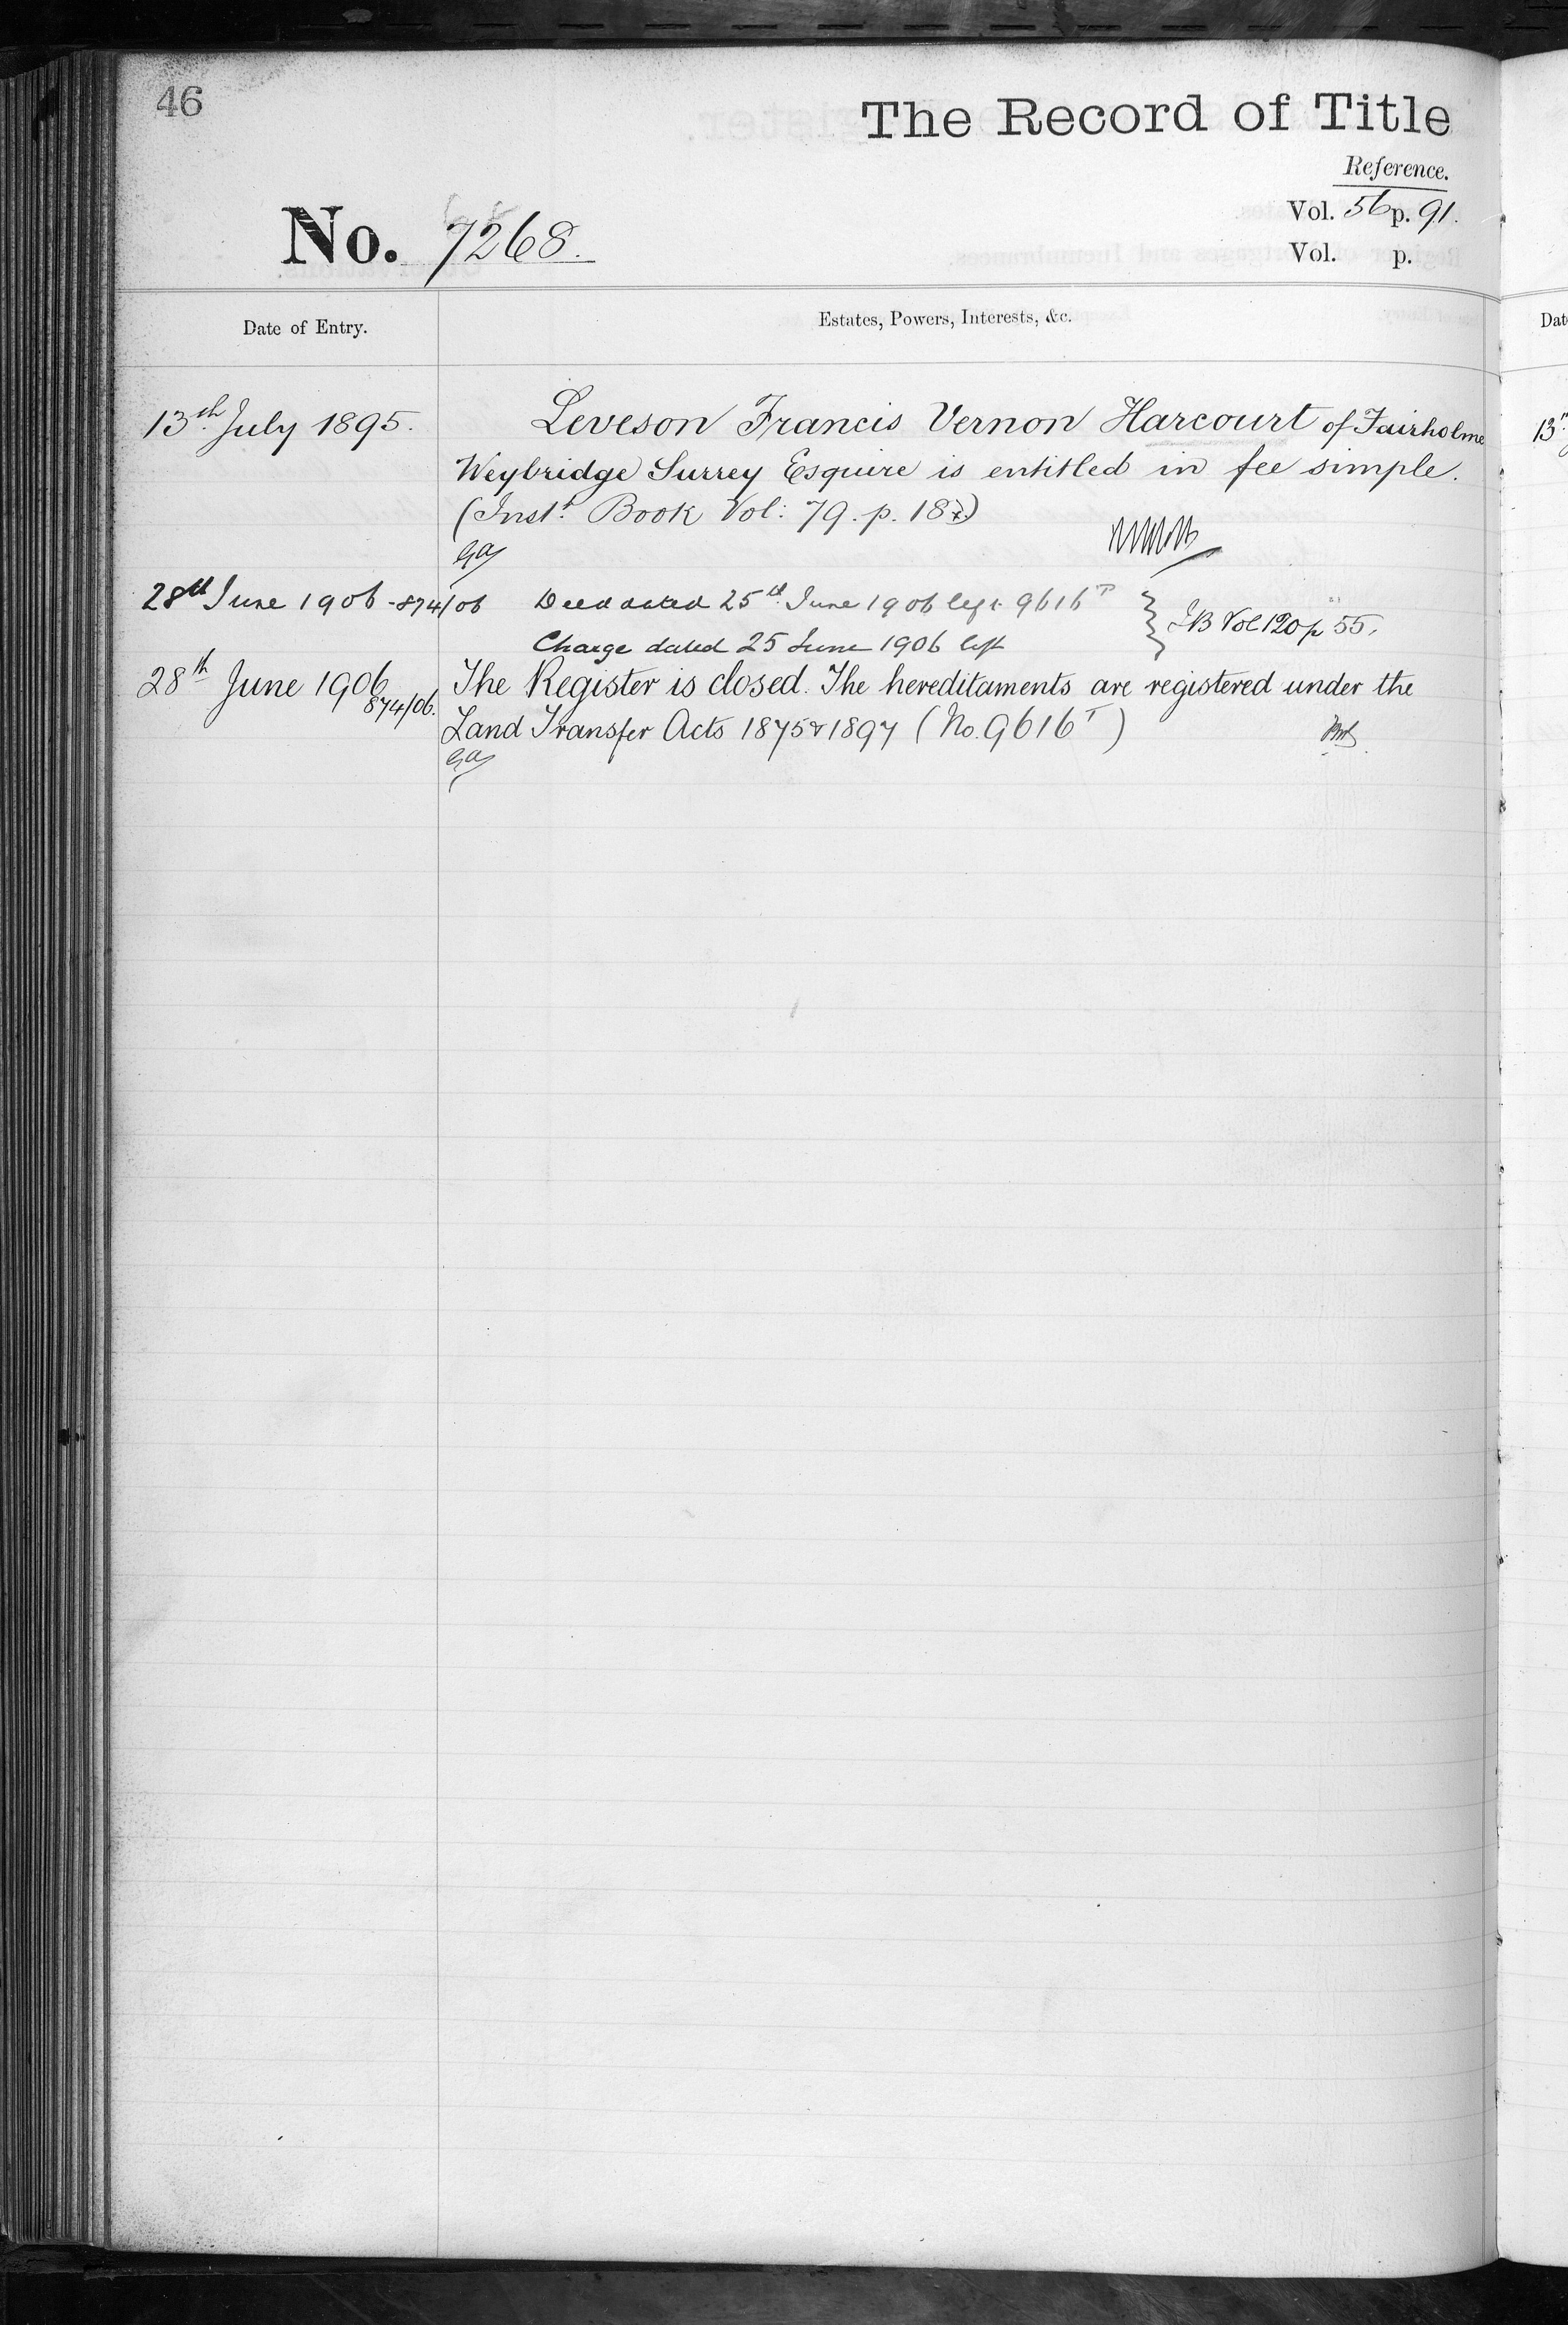 46
The Record of Title
Reference.
Vol. 56 p. 91.
No. 7268.
Vol. p.
Date of Entry.
Estates, Powers, Interests, &c.
13th July 1895.
Leveson Francis Vernon Harcourt of Fairholme
Weybridge Surrey Esquire is entitled in fee simple.
(Inst. Book Vol: 79. p. 187)
28th June 1906 - 874/06
Deed dated 25th June 1906 left 9616T
IB Vol 120 p 55.
Charge dated 25 June 1906 left
28th June 1906
874/06.
The Register is closed. The hereditaments are registered under the
Land Transfer Acts 1875 & 1897 (No. 9616T)
Dat
13